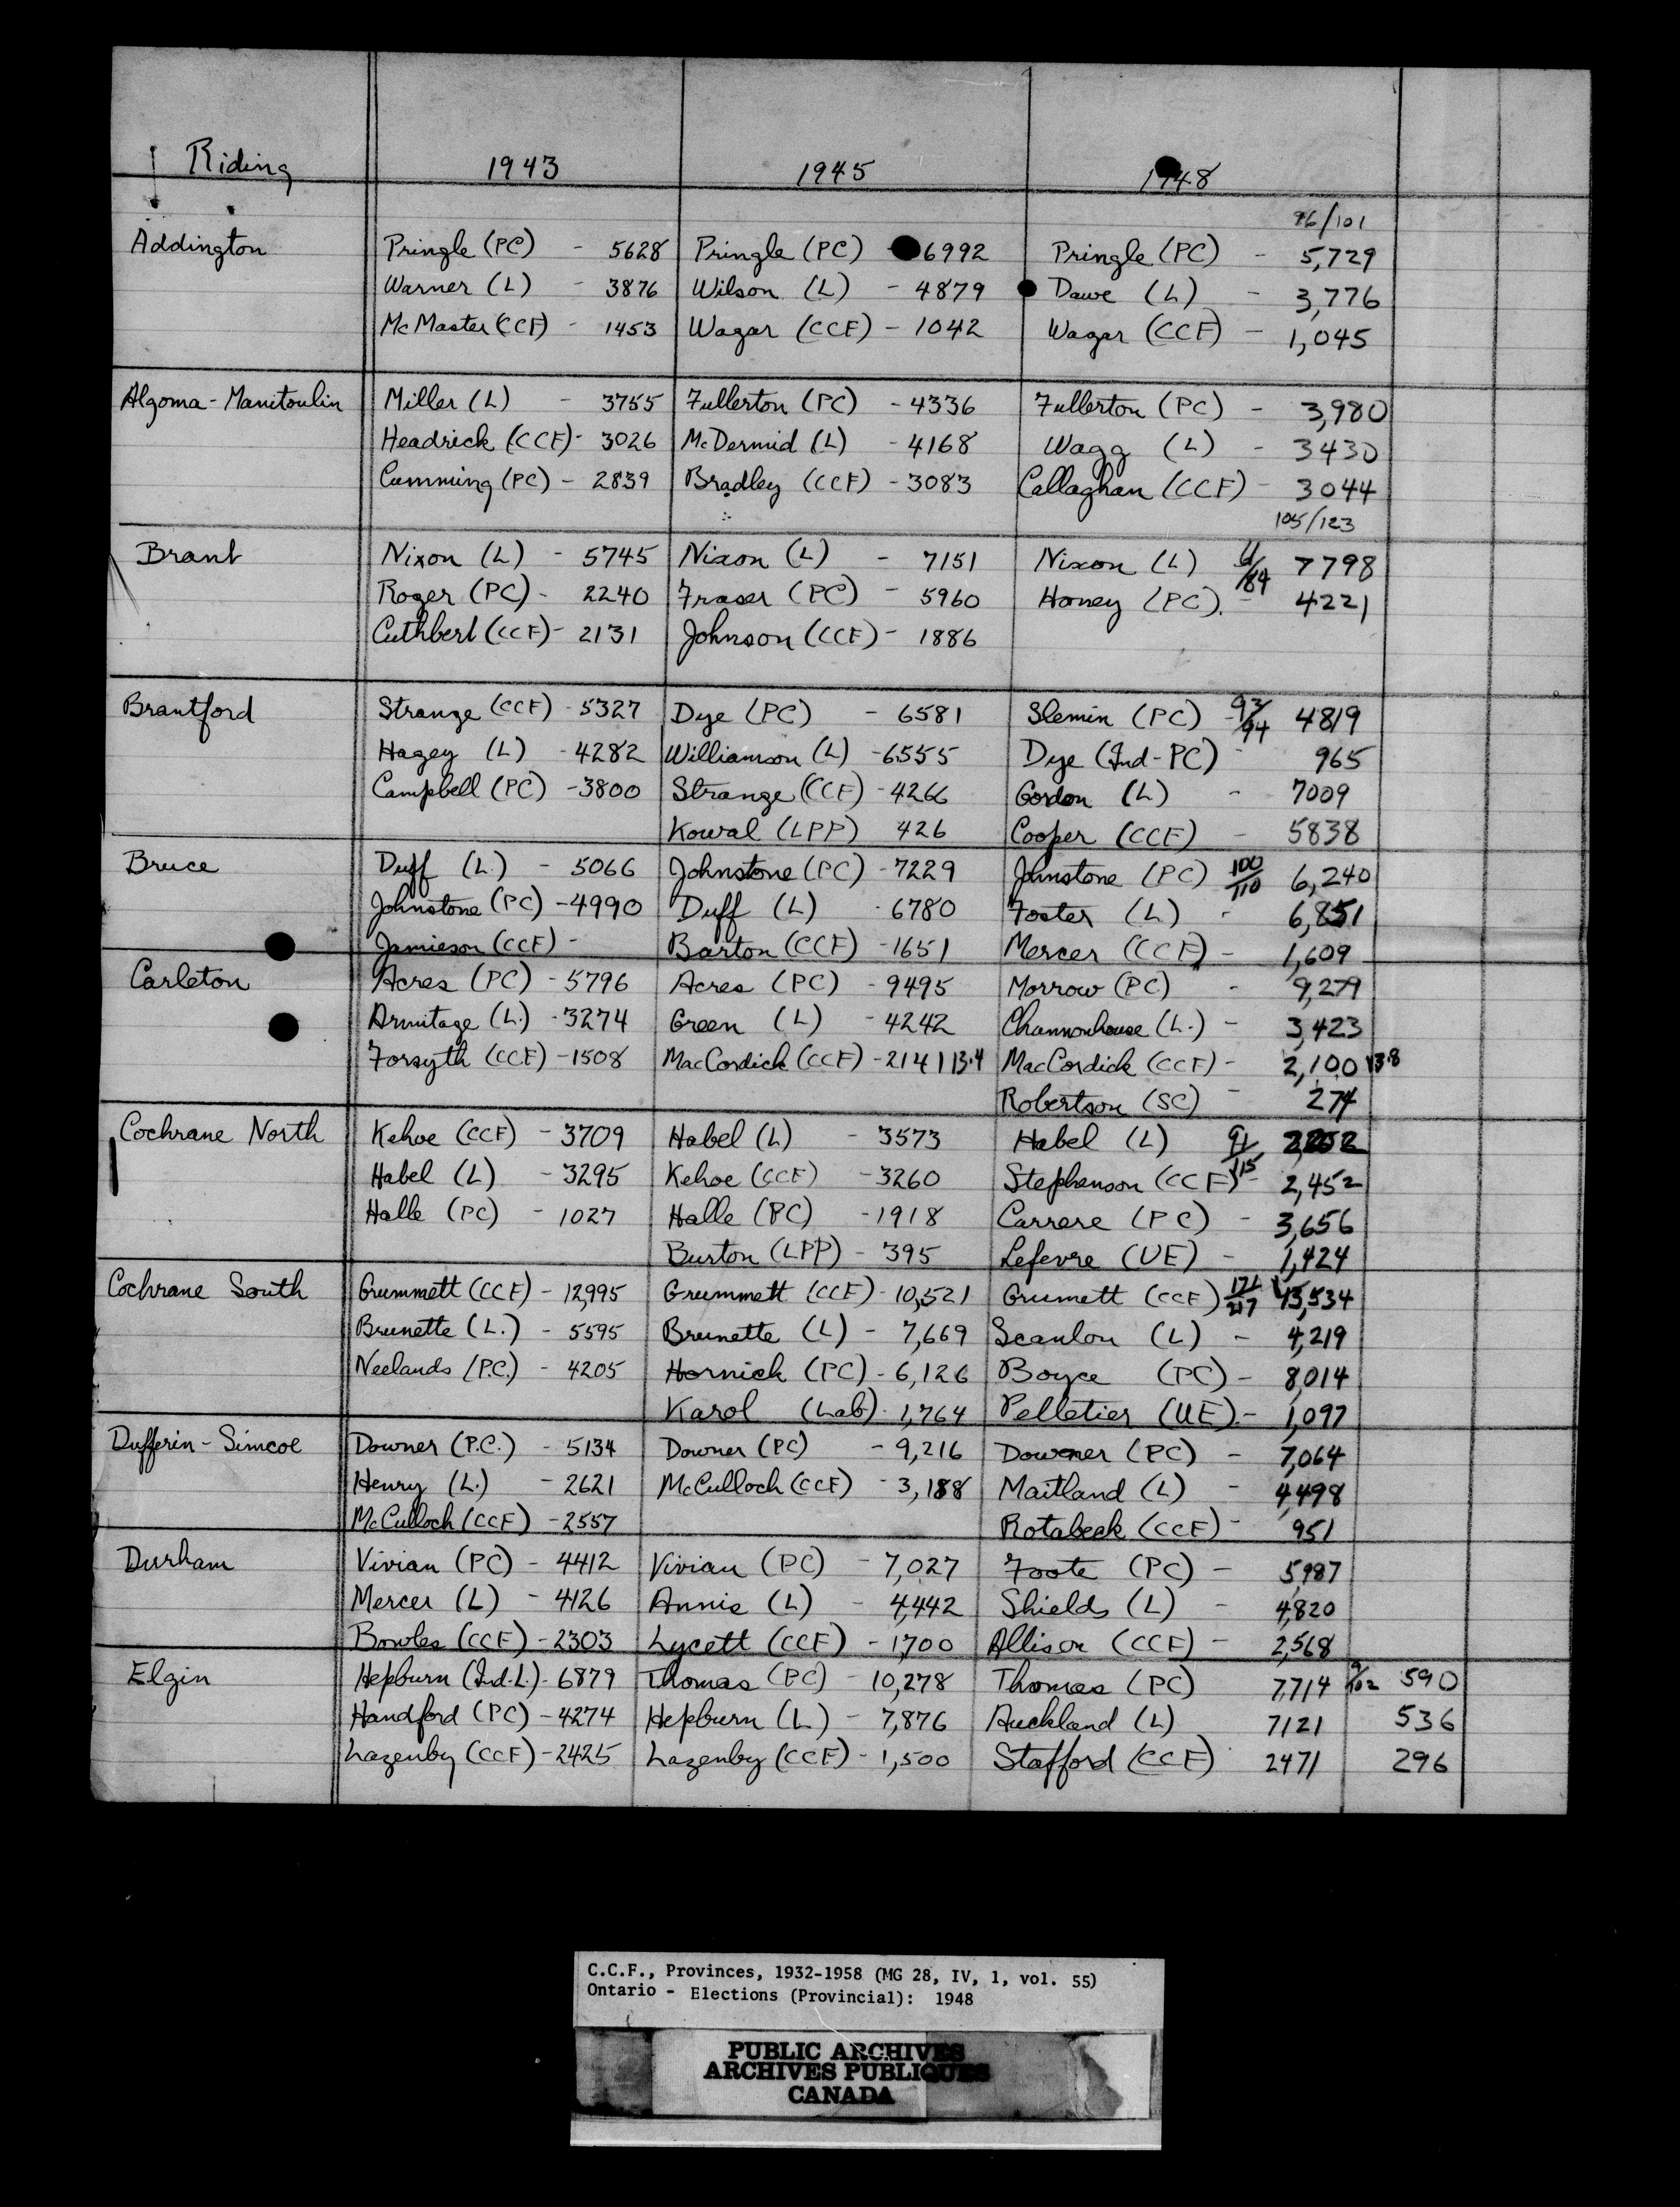 Riding 1943 1945 1948
96/101
Addington Pringle (PC) - 5628 Pringle (PC) - 6992 Pringle (PC) - 5,729
Warner (L) - 3876 Wilson (L) - 4879 Dawe (L) - 3,776
McMaster (CCF) - 1453 Wagar (CCF) - 1042 Wagar (CCF) - 1,045
Algoma-Manitoulin Miller (L) - 3755 Fullerton (PC) - 4336 Fullerton (PC) - 3,980
Headrick (CCF) - 3026 McDermid (L) - 4168 Wagg (L) - 3430
Cumming (PC) - 2839 Bradley (CCF) - 3083 Callaghan (CCF) - 3044
105/123
Brant Nixon (L) - 5745 Nixon (L) - 7151 Nixon (L) /84 7798
Roger (PC) - 2240 Fraser (PC) - 5960 Honey (PC). - 4221
Cuthbert (CCF) - 2131 Johnson (CCF) - 1886
Brantford Strange (CCF) - 5327 Dye (PC) - 6581 Slemin (PC) - 93/94 4819
Hagey (L) - 4282 Williamson (L) - 6555 Dye (Ind-PC) - 965
Campbell (PC) - 3800 Strange (CCF) - 4266 Gordon (L) - 7009
Kowal (LPP) 426 Cooper (CCF) - 5838
Bruce Duff (L.) - 5066 Johnstone (PC) - 7229 Johnstone (PC) 100/110 6,240
Johnstone (PC) - 4990 Duff (L) - 6780 Foster (L) - 6,851
Jamieson (CCF) - Barton (CCF) - 1651 Mercer (CCF) - 1,609
Carleton Acres (PC) - 5796 Acres (PC) - 9495 Morrow (PC) - 9,279
Armitage (L.) - 3274 Green (L) - 4242 Channonhouse (L.) - 3,423
Forsyth (CCF) - 1508 MacCordick (CCF) - 2141 13.4 MacCordick (CCF) - 2,100 13.8
Robertson (SC) - 274
Cochrane North Kehoe (CCF) - 3709 Habel (L) - 3573 Habel (L) 91/115
Habel (L) - 3295 Kehoe (CCF) - 3260 Stephenson (CCF) - 2,452
Halle (PC) - 1027 Halle (PC) - 1918 Carrere (PC) - 3,656
Burton (LPP) - 395 Lefevre (UE) - 1,424
Cochrane South Grummett (CCF) - 12,995 Grummett (CCF) - 10,521 Grumett (CCF) 13,534
Brunette (L.) - 5595 Brunette (L) - 7,669 Scanlon (L) - 4,219
Neelands (P.C.) - 4205 Hornick (PC) - 6,126 Boyce (PC) - 8,014
Karol (Lab) - 1,764 Pelletier (UE). - 1,097
Dufferin-Simcoe Downer (P.C.) - 5134 Downer (PC) - 9,216 Downer (PC) - 7,064
Henry (L.) - 2621 McCulloch (CCF) - 3,188 Maitland (L) - 4,498
McCulloch (CCF) - 2557 Rotabeck (CCF) - 951
Durham Vivian (PC) - 4412 Vivian (PC) - 7,027 Foote (PC) - 5,987
Mercer (L) - 4126 Annis (L) - 4,442 Shields (L) - 4,820
Bowles (CCF) - 2303 Lycett (CCF) - 1700 Allison (CCF) - 2,568
Elgin Hepburn (Ind.L.) - 6879 Thomas (PC) - 10,278 Thomas (PC) 7,714 590
Handford (PC) - 4274 Hepburn (L) - 7,876 Auckland (L) 7121 536
Lazenby (CCF) - 2425 Lazenby (CCF) - 1,500 Stafford (CCF) 2471 296
C.C.F., Provinces, 1932-1958 (MG 28, IV, 1, vol. 55)
Ontario - Elections (Provincial): 1948
PUBLIC ARCHIVES
ARCHIVES PUBLIQUES
CANADA